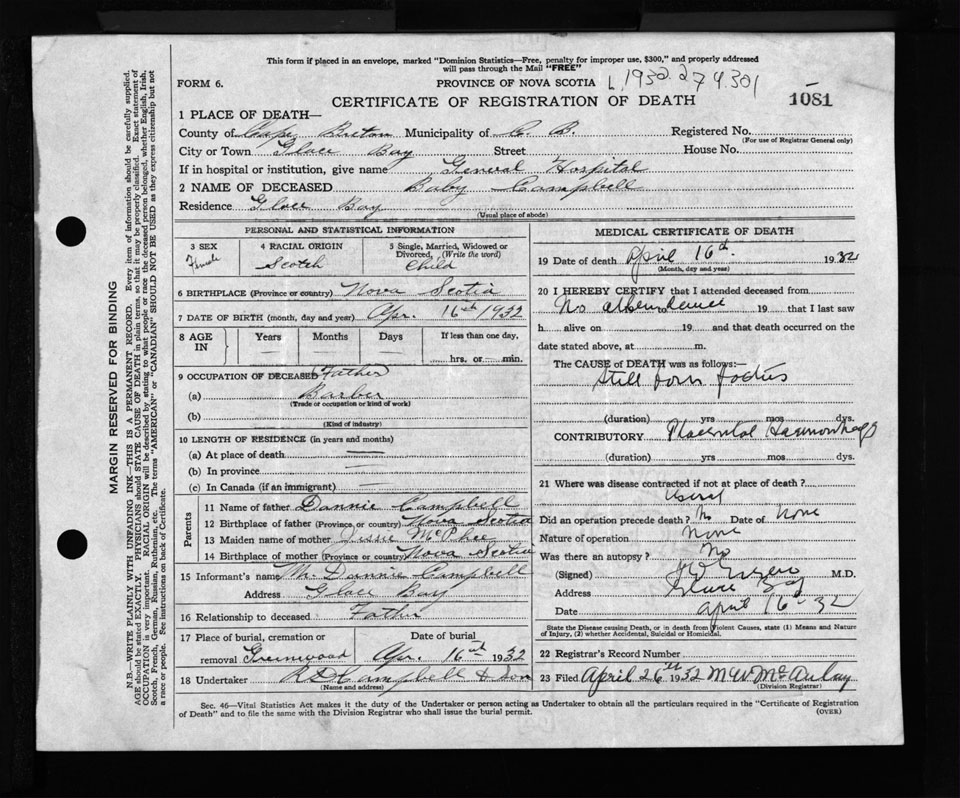 This form if placed in an envelope, marked "Dominion Statistics—Free, penalty for improper use, $300," and properly addressed
will pass through the Mail "FREE"
FORM 6. PROVINCE OF NOVA SCOTIA L 1932.279.301
CERTIFICATE OF REGISTRATION OF DEATH 1081
1 PLACE OF DEATH—
County of Cape Breton Municipality of C. B. Registered No.
(For use of Registrar General only)
City or Town Glace Bay Street House No.
If in hospital or institution, give name General Hospital
2 NAME OF DECEASED Baby Campbell
Residence Glace Bay
(Usual place of abode)
PERSONAL AND STATISTICAL INFORMATION
3 SEX 4 RACIAL ORIGIN 5 Single, Married, Widowed or Divorced, (Write the word)
Female Scotch Child
6 BIRTHPLACE (Province or country) Nova Scotia
7 DATE OF BIRTH (month, day and year) Apr. 16th 1932
8 AGE IN Years Months Days If less than one day,
hrs. or min.
9 OCCUPATION OF DECEASED Father
(a) Barber
(Trade or occupation or kind of work)
(b)
(Kind of industry)
10 LENGTH OF RESIDENCE (in years and months)
(a) At place of death —
(b) In province —
(c) In Canada (if an immigrant) —
Parents
11 Name of father Dannie Campbell
12 Birthplace of father (Province or country) Nova Scotia
13 Maiden name of mother Jessie McPhee
14 Birthplace of mother (Province or country) Nova Scotia
15 Informant's name Mr. Dannie Campbell
Address Glace Bay
16 Relationship to deceased Father
17 Place of burial, cremation or Date of burial
removal Greenwood Apr. 16th 1932
18 Undertaker A D Campbell & Son
(Name and address)
MEDICAL CERTIFICATE OF DEATH
19 Date of death April 16th. 1932
(Month, day and year)
20 I HEREBY CERTIFY that I attended deceased from
No attendance 19 that I last saw
h alive on 19 and that death occurred on the
date stated above, at m.
The CAUSE of DEATH was as follows:—
Still born foetus
(duration) yrs mos dys.
CONTRIBUTORY Placental Haemorrhage
(duration) yrs. mos. dys.
21 Where was disease contracted if not at place of death?
Did an operation precede death? No Date of None
Nature of operation None
Was there an autopsy? No
(Signed) M.D.
Address Glace Bay
Date April 16-32
State the Disease causing Death, or in death from Violent Causes, state (1) Means and Nature
of Injury, (2) whether Accidental, Suicidal or Homicidal.
22 Registrar's Record Number
23 Filed April 26th 1932 M W McAulay
(Division Registrar)
Sec. 46—Vital Statistics Act makes it the duty of the Undertaker or person acting as Undertaker to obtain all the particulars required in the "Certificate of Registration
of Death" and to file the same with the Division Registrar who shall issue the burial permit. (OVER)
MARGIN RESERVED FOR BINDING
N.B.—WRITE PLAINLY WITH UNFADING INK—THIS IS A PERMANENT RECORD. Every item of information should be carefully supplied.
AGE should be stated EXACTLY. PHYSICIANS should STATE CAUSE OF DEATH in plain terms, so that it may be properly classified. Exact statement of
OCCUPATION is very important. RACIAL ORIGIN will be described by stating to what people or race the deceased person belonged, whether English, Irish,
Scotch, French, German, Russian, Ruthenian, etc. The terms "AMERICAN" or "CANADIAN" SHOULD NOT BE USED as they express citizenship but not
a race or people. See instructions on back of Certificate.